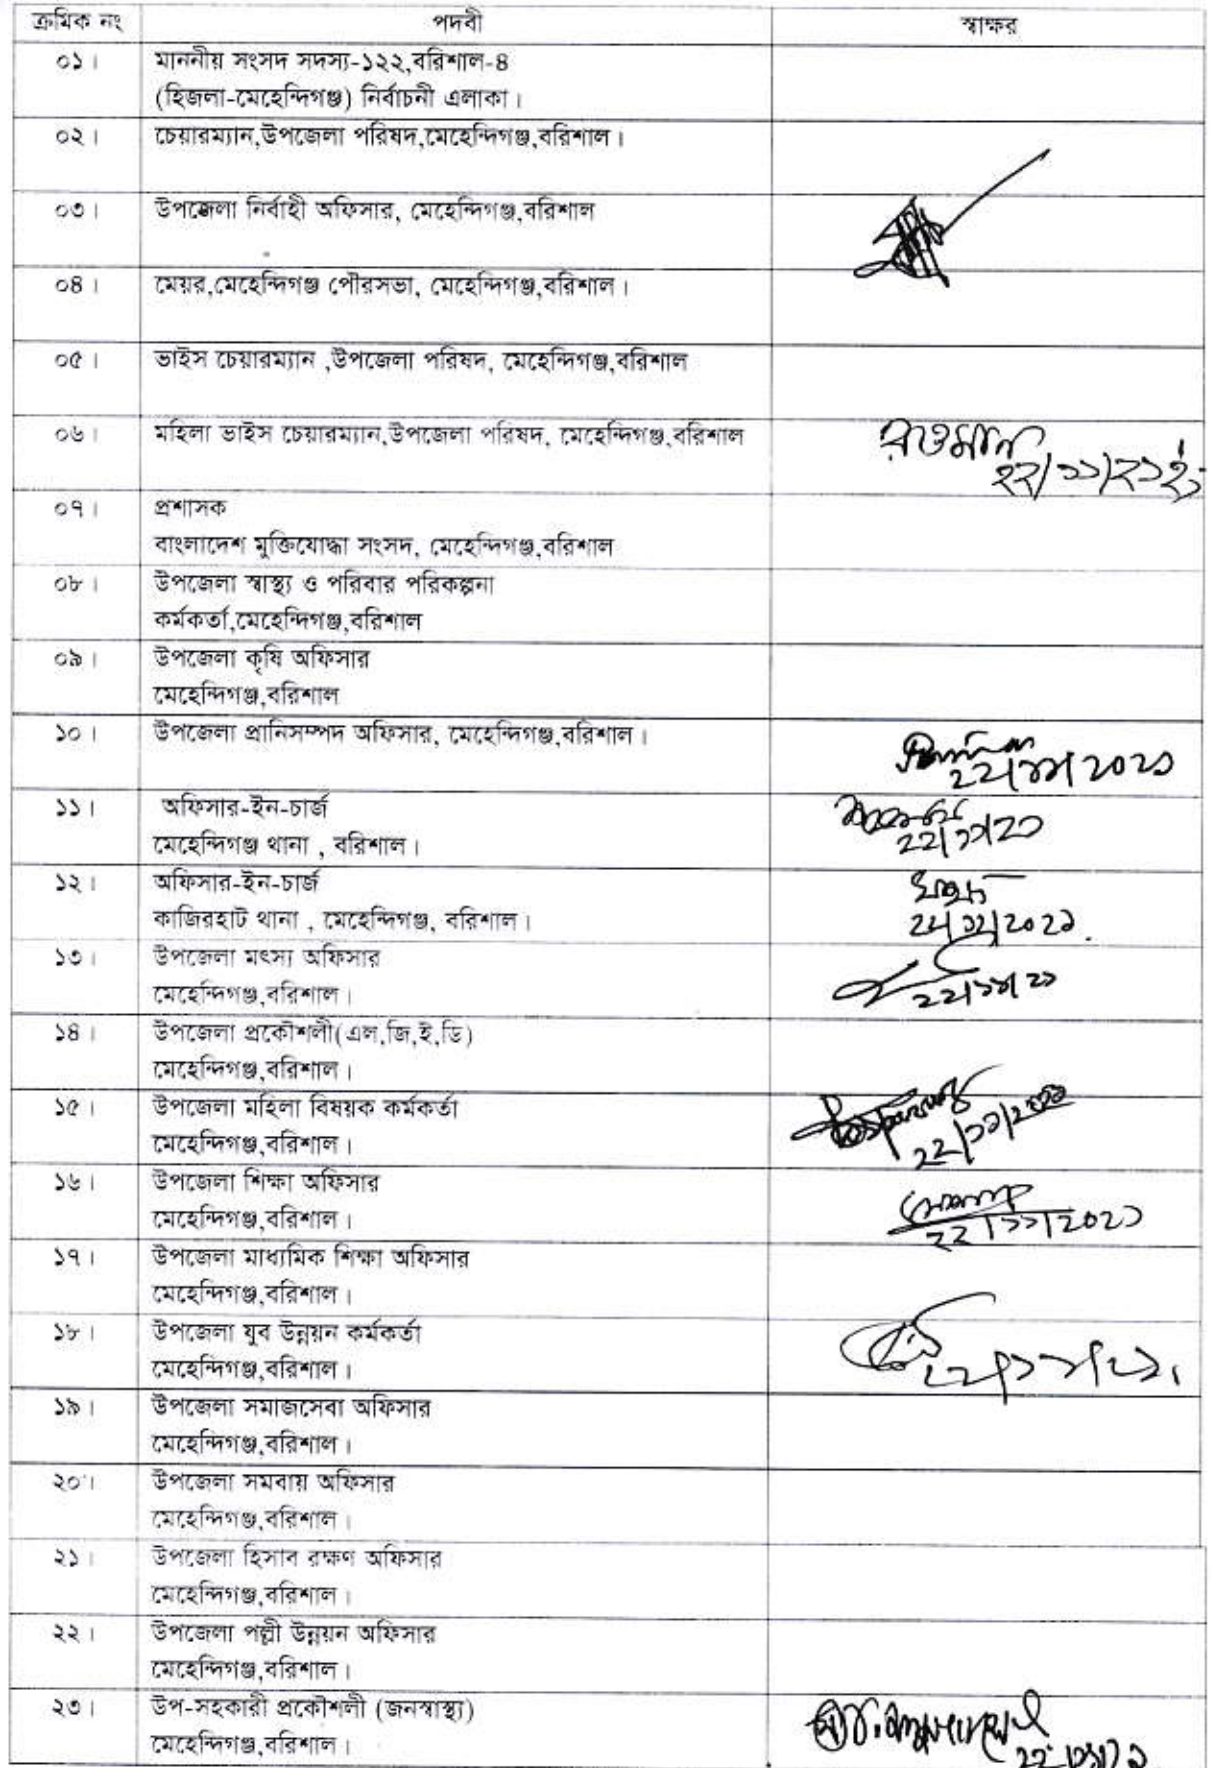 ক্রমিক নং পদবী স্বাক্ষর
০১। মাননীয় সংসদ সদস্য-১২২,বরিশাল-৪
(হিজলা-মেহেন্দিগঞ্জ) নির্বাচনী এলাকা।
০২। চেয়ারম্যান,উপজেলা পরিষদ,মেহেন্দিগঞ্জ,বরিশাল।
০৩। উপজেলা নির্বাহী অফিসার, মেহেন্দিগঞ্জ,বরিশাল
০৪। মেয়র,মেহেন্দিগঞ্জ পৌরসভা, মেহেন্দিগঞ্জ,বরিশাল।
০৫। ভাইস চেয়ারম্যান ,উপজেলা পরিষদ, মেহেন্দিগঞ্জ,বরিশাল
০৬। মহিলা ভাইস চেয়ারম্যান,উপজেলা পরিষদ, মেহেন্দিগঞ্জ,বরিশাল
২২/১১/২১ইং
০৭। প্রশাসক
বাংলাদেশ মুক্তিযোদ্ধা সংসদ, মেহেন্দিগঞ্জ,বরিশাল
০৮। উপজেলা স্বাস্থ্য ও পরিবার পরিকল্পনা
কর্মকর্তা,মেহেন্দিগঞ্জ,বরিশাল
০৯। উপজেলা কৃষি অফিসার
মেহেন্দিগঞ্জ,বরিশাল
১০। উপজেলা প্রানিসম্পদ অফিসার, মেহেন্দিগঞ্জ,বরিশাল।
২২/১১/২০২১
১১। অফিসার-ইন-চার্জ
মেহেন্দিগঞ্জ থানা , বরিশাল। ২২/১১/২১
১২। অফিসার-ইন-চার্জ
কাজিরহাট থানা , মেহেন্দিগঞ্জ, বরিশাল।
১৩। উপজেলা মৎস্য অফিসার
মেহেন্দিগঞ্জ,বরিশাল। ২২/১১/২১
১৪। উপজেলা প্রকৌশলী(এল,জি,ই,ডি)
মেহেন্দিগঞ্জ,বরিশাল।
১৫। উপজেলা মহিলা বিষয়ক কর্মকর্তা
মেহেন্দিগঞ্জ,বরিশাল। ২২/১১/২০২১
১৬। উপজেলা শিক্ষা অফিসার
মেহেন্দিগঞ্জ,বরিশাল। ২২/১১/২০২১
১৭। উপজেলা মাধ্যমিক শিক্ষা অফিসার
মেহেন্দিগঞ্জ,বরিশাল।
১৮। উপজেলা যুব উন্নয়ন কর্মকর্তা
মেহেন্দিগঞ্জ,বরিশাল। ২২/১১/২১
১৯। উপজেলা সমাজসেবা অফিসার
মেহেন্দিগঞ্জ,বরিশাল।
২০। উপজেলা সমবায় অফিসার
মেহেন্দিগঞ্জ,বরিশাল।
২১। উপজেলা হিসাব রক্ষণ অফিসার
মেহেন্দিগঞ্জ,বরিশাল।
২২। উপজেলা পল্লী উন্নয়ন অফিসার
মেহেন্দিগঞ্জ,বরিশাল।
২৩। উপ-সহকারী প্রকৌশলী (জনস্বাস্থ্য)
মেহেন্দিগঞ্জ,বরিশাল।